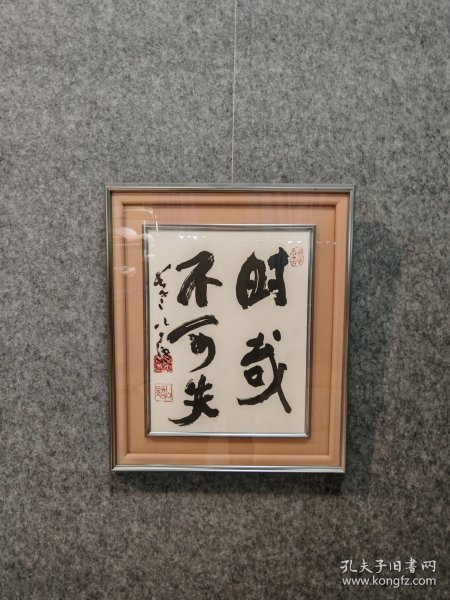 时哉
不可失
孔夫子旧书网
www.kongfz.com